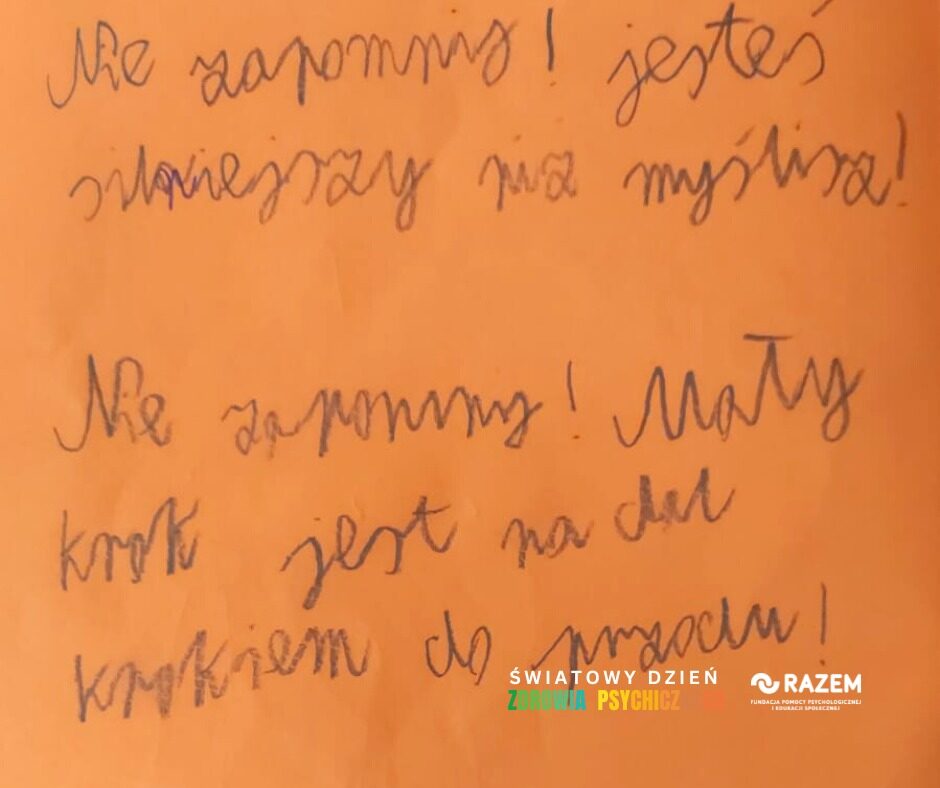 Nie zapomnij! jesteś
silniejszy niż myślisz!
Nie zapomnij! Mały
krok jest na dal
krokiem do przodu!
ŚWIATOWY DZIEŃ
ZDROWIA PSYCHICZNEGO
RAZEM
FUNDACJA POMOCY PSYCHOLOGICZNEJ
I EDUKACJI SPOŁECZNEJ